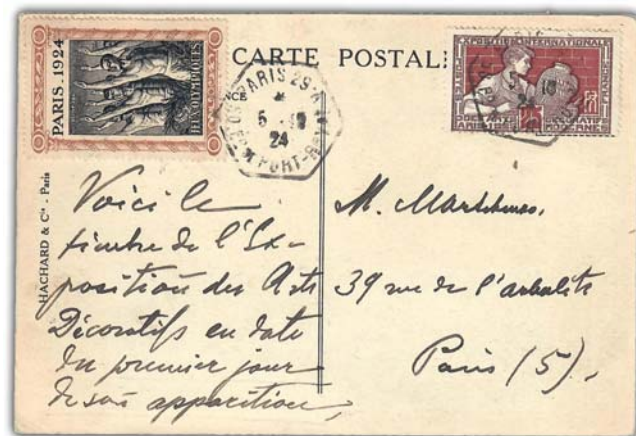 PARIS.1924
JEUX OLYMPIQUES
CARTE POSTALE
PARIS 29
5 - 10
24
PORT-R
EXPOSITION INTERNATIONALE
MODERNES
5 10
24
HACHARD & Cie - Paris
Voici le
timbre de l'Ex-
position des Arts
Décoratifs en date
du premier jour
de son apparition,
M.
39 rue de l'arbalète
Paris (5).